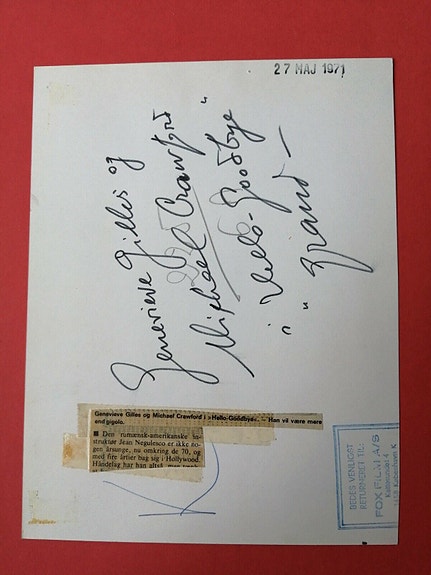 27 MAJ 1971
Genevieve Gilles og
Michael Crawford
"Hello-Goodbye"
Genevieve Gilles og Michael Crawford i »Hello-Goodbye« – Han vil være mere
end gigolo.
■ Den rumænsk-amerikanske in-
struktør Jean Negulesco er ikke no-
gen årsunge, nu omkring de 70, og
med fire årtier bag sig i Hollywood.
Håndelag har han altså, men
BEDES VENLIGST
RETURNERET TIL:
FOX FILM A/S
København K